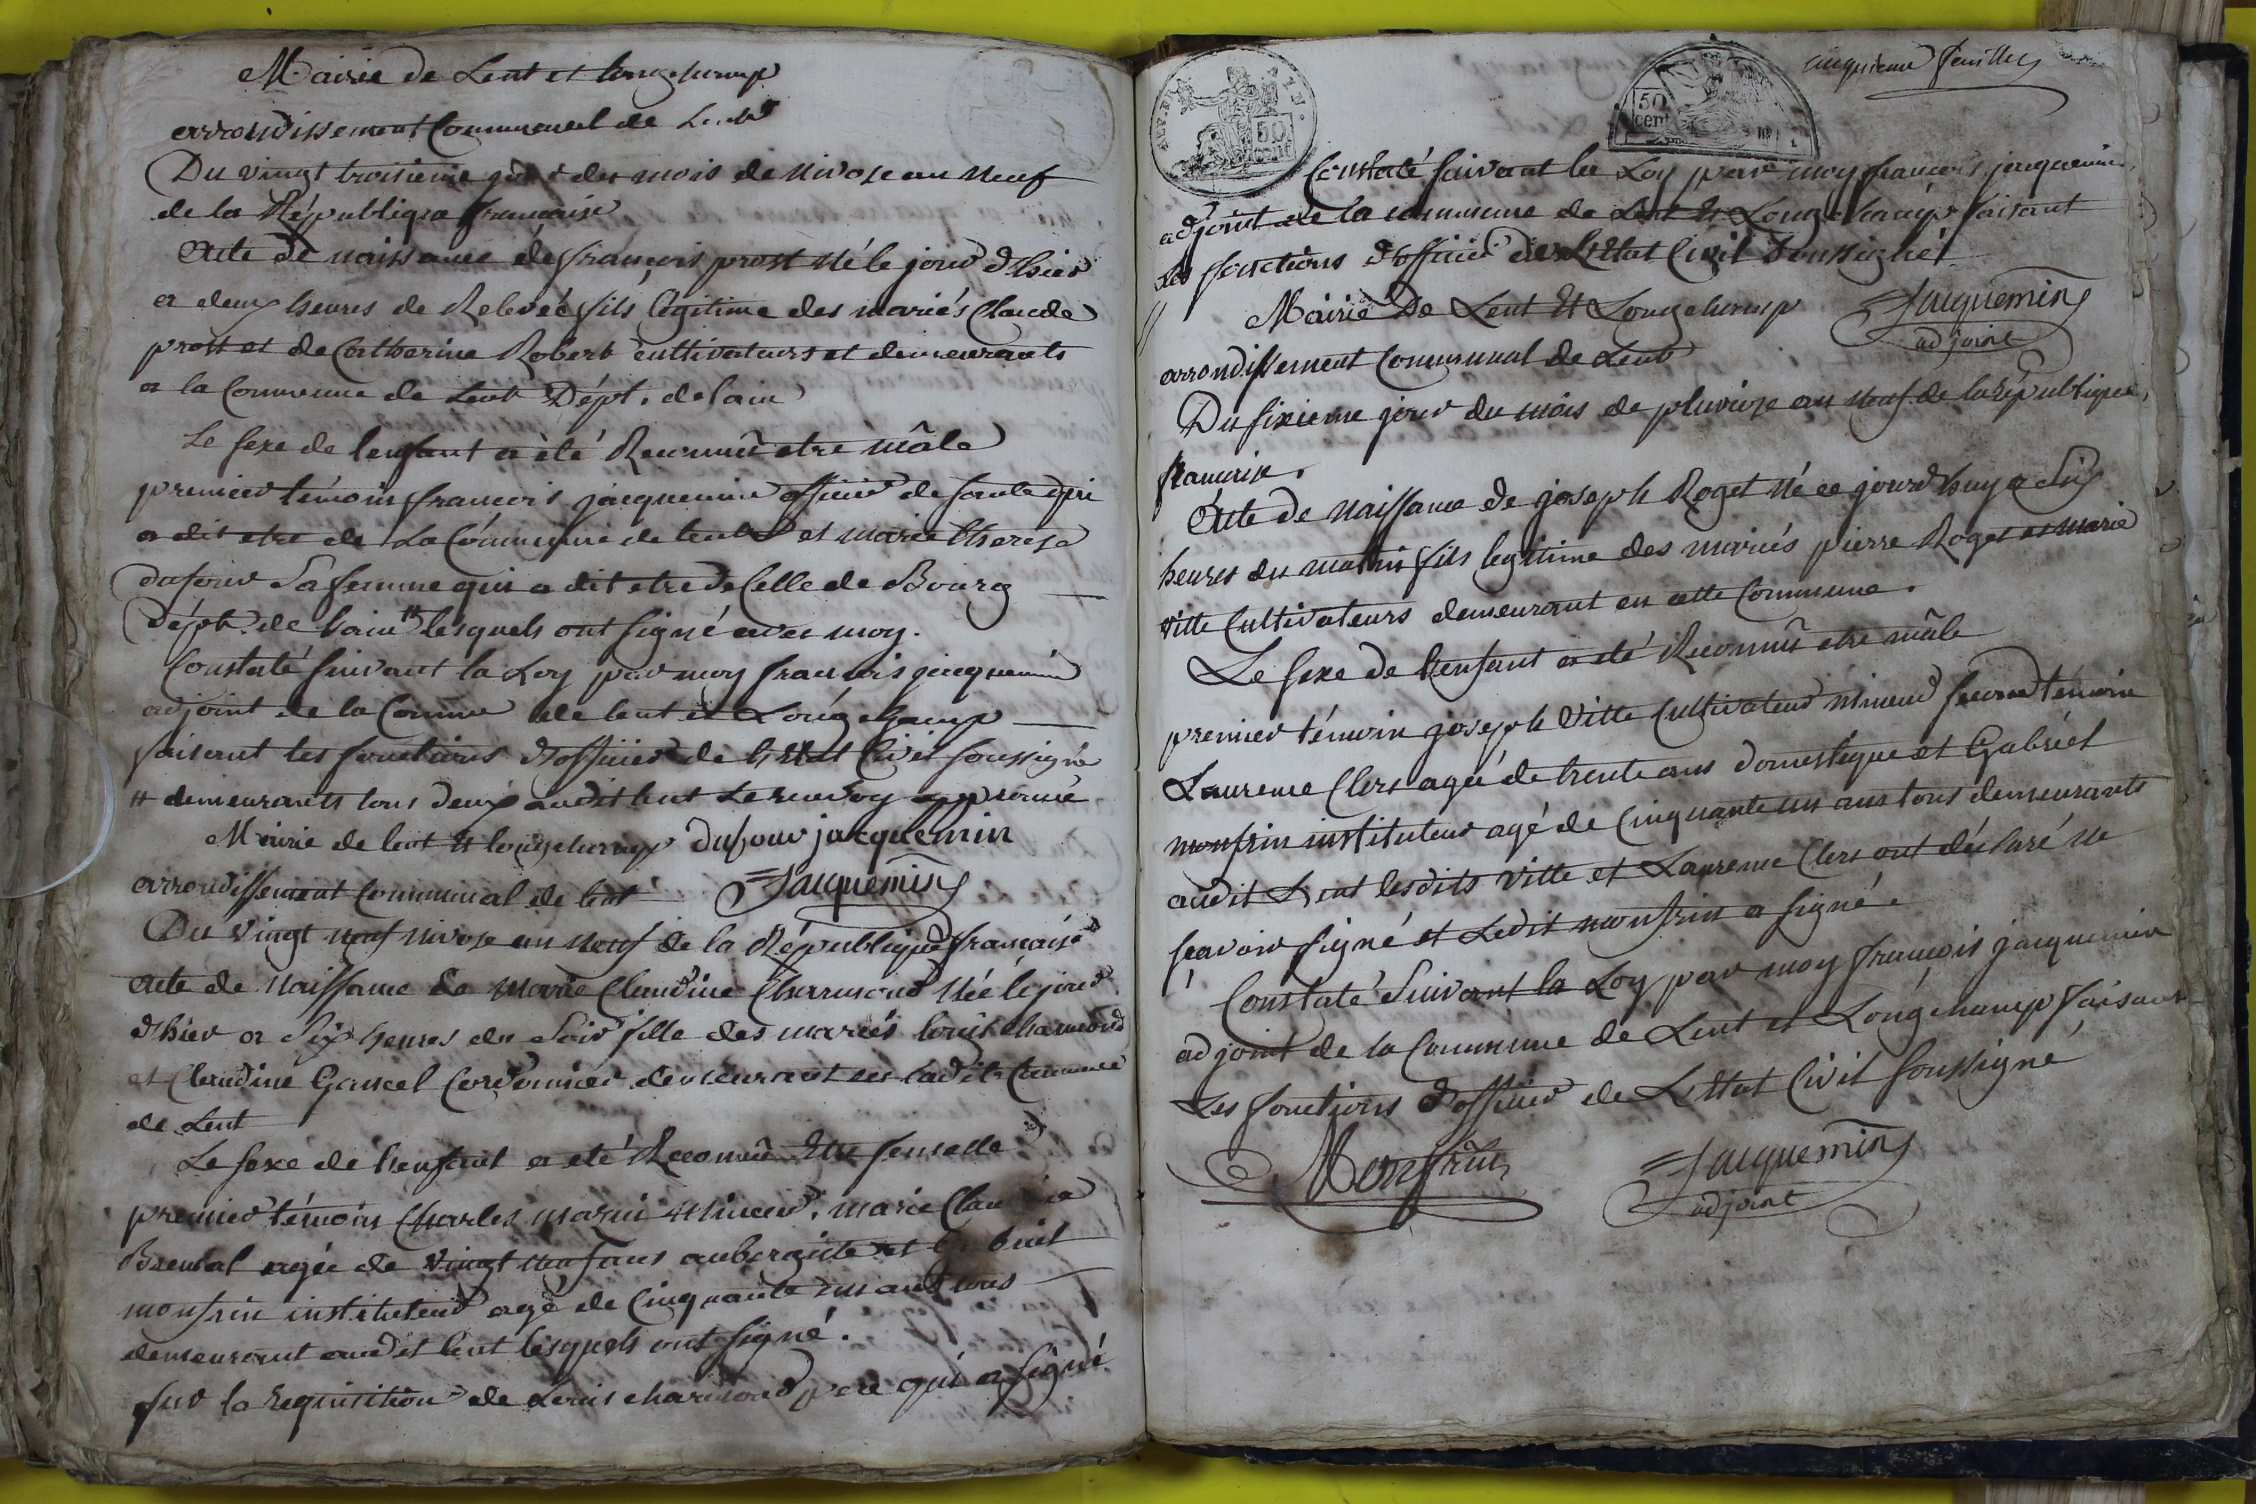 Mairie de Lent et longchamp
arrondissement Communal de Lent
Du vingt troisieme jour des mois de nivose an neuf
de la Républiqea française
Acte de naissance de françois prost né le jour d'hier
a deux heures de Relevée fils légitime des mariés Claude
prost et de Catherine Robert cultivateurs et demeurants
a la Commune de Lent Dépt. de lain
Le sexe de lenfant a èté Reconnû etre mâle
premier témoin francois jacquemin officier de santé qui
a dit etre de La Commune de lent et marie therese
dufour Sa femme qui a dit etre de Celle de Bourg
Dépt. de lain # lesquels ont signé avec moy.
Constaté suivant la Loy par moy francois jacquemin
adjoint de la Comme de lent et Longchamp
faisant les fonctions d'officier de L'Etat Civil soussigné
# demeurants tous deux audit lent Le renvoy approuvé
Mairie de lent et longchamp dufour jacquemin
arrondissement Communal de lent Jacquemin
Du Vingt neuf nivose an neuf de la République française
Acte de Naissance de marie Claudine Charmond Née le jour
d'hier a Six heures du Soir fille des mariés louis charmond
et Claudine Gancel Cordonnier demeurant en ladite Commune
de Lent
Le sexe de lenfant a eté Reconnû Etre femelle
premier témoin Charles marin Mineur. marie Claudine
agée de vingt neuf ans aubergiste et
monfrin instituteur agé de Cinquante un ans tous
demeurant audit lent lesquels ont signé.
sur la requisition de Louis charmond pere qui a signé
cinquieme feuillet
50 cent
50 cent
Constaté suivant la Loy par moy françois jacquemin
adjoint de la commune de Lent Et Longchamp faisant
les fonctions d'officier de L'Etat Civil soussigné
Jacquemin
adjoint
Mairie De Lent Et Longchamp
arrondissement Communal de Lent
Du sixieme jour du mois de pluviose an neuf de la République
francaise.
Acte de Naissance de joseph Roget né ce jourd'huy a Six
heures du matin fils legitime des mariés pierre Roget et marie
Vitte Cultivateurs demeurant en cette Commune.
Le sexe de L'enfant a eté Reconnû etre mâle
premier témoin joseph Vitte Cultivateur mineur second témoin
Laurence Clers agée de trente ans domestique et Gabriel
monfrin instituteur agé de Cinquante un ans tous demeurants
audit Lent lesdits Vitte et Laurence Clers ont déclaré ne
scavoir signé et Ledit monfrin a signé.
Constaté Suivant la Loy par moy francois jacquemin
adjoint de la Commune de Lent et Longchamp faisant
Les fonctions d'officier de L'Etat Civil soussigné
Monfrin Jacquemin
adjoint